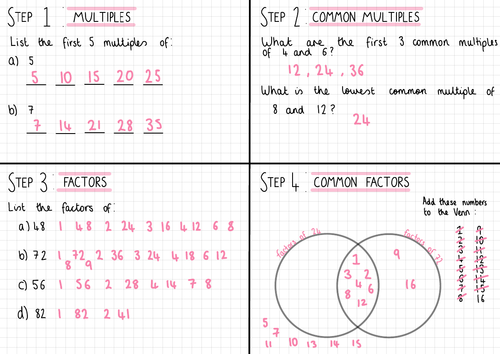 STEP 1 MULTIPLES
List the first 5 multiples of:
a) 5
5 10 15 20 25
b) 7
7 14 21 28 35
STEP 2 COMMON MULTIPLES
What are the first 3 common multiples
of 4 and 6?
12, 24, 36
What is the lowest common multiple of
8 and 12?
24
STEP 3 FACTORS
List the factors of:
a) 48 1 48 2 24 3 16 4 12 6 8
b) 72 1 72 2 36 3 24 4 18 6 12
8 9
c) 56 1 56 2 28 4 14 7 8
d) 82 1 82 2 41
STEP 4 COMMON FACTORS
Add these numbers
to the Venn:
1 9
2 10
3 11
4 12
5 13
6 14
7 15
8 16
factors of 24
factors of 72
1
3 2
4 6
8
12
9
16
5
7
11 10 13 14 15